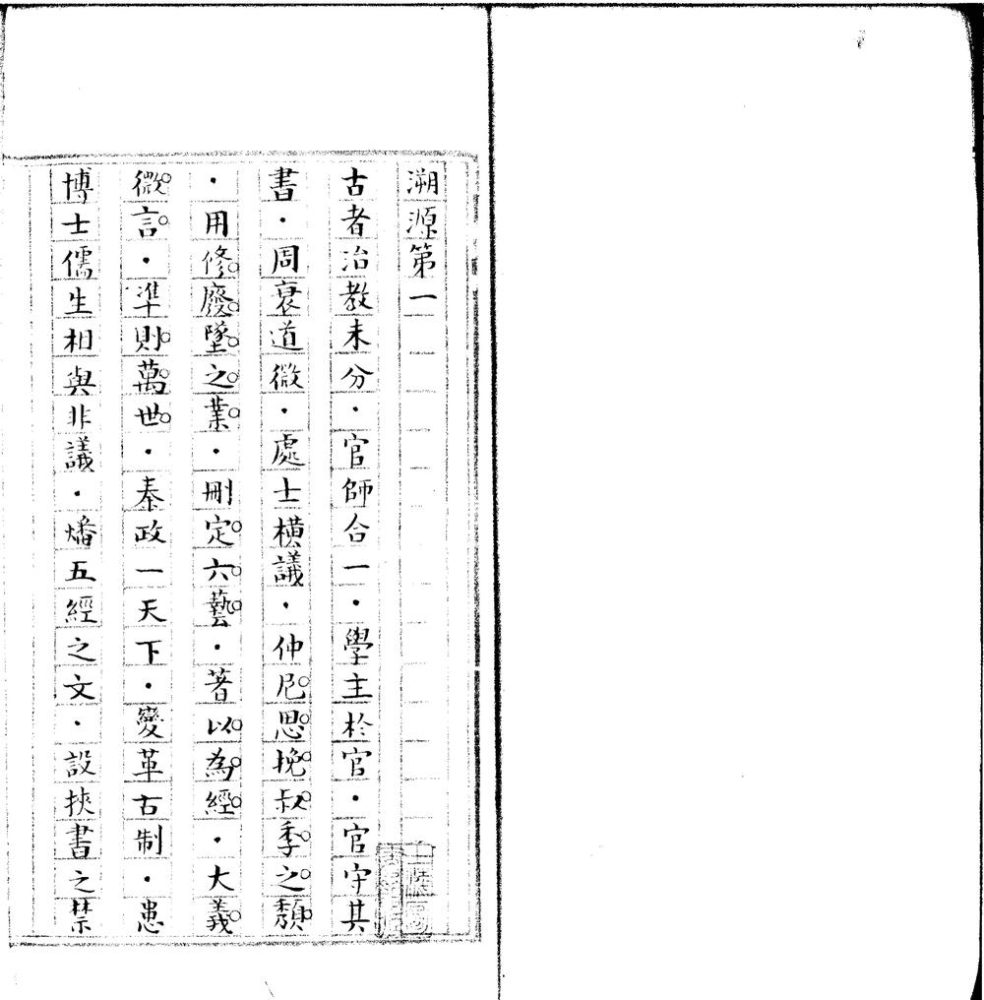 溯源第一
古者治教未分·官師合一·學主於官·官守其
書·周衰道微·處士橫議·仲尼思挽叔季之頹
·用修廢墜之業·刪定六藝·著以為經·大義
微言·準則萬世·秦政一天下·變革古制·患
博士儒生相與非議·燔五經之文·設挾書之禁